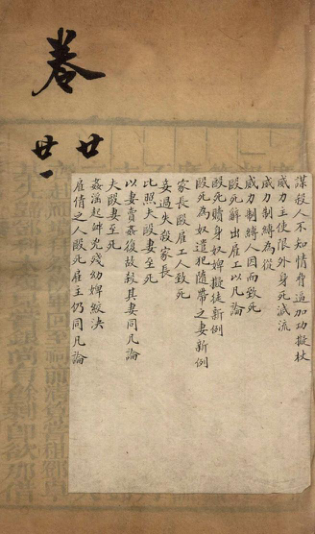 卷
廿
廿一
謀殺人不知情脅迫加功擬杖
威力主使限外身死減流
威力制縛為從
威力制縛人因而致死
毆死辭出雇工以凡論
毆死贖身奴婢擬徒新例
毆死為奴遣犯隨帶之妻新例
家長毆雇工人致死
妾過失殺家長
比照夫毆妻至死
以妻賣姦復故殺其妻同凡論
夫毆妻至死
姦淫起衅兇殘幼婢絞決
雇倩之人毆死雇主仍同凡論